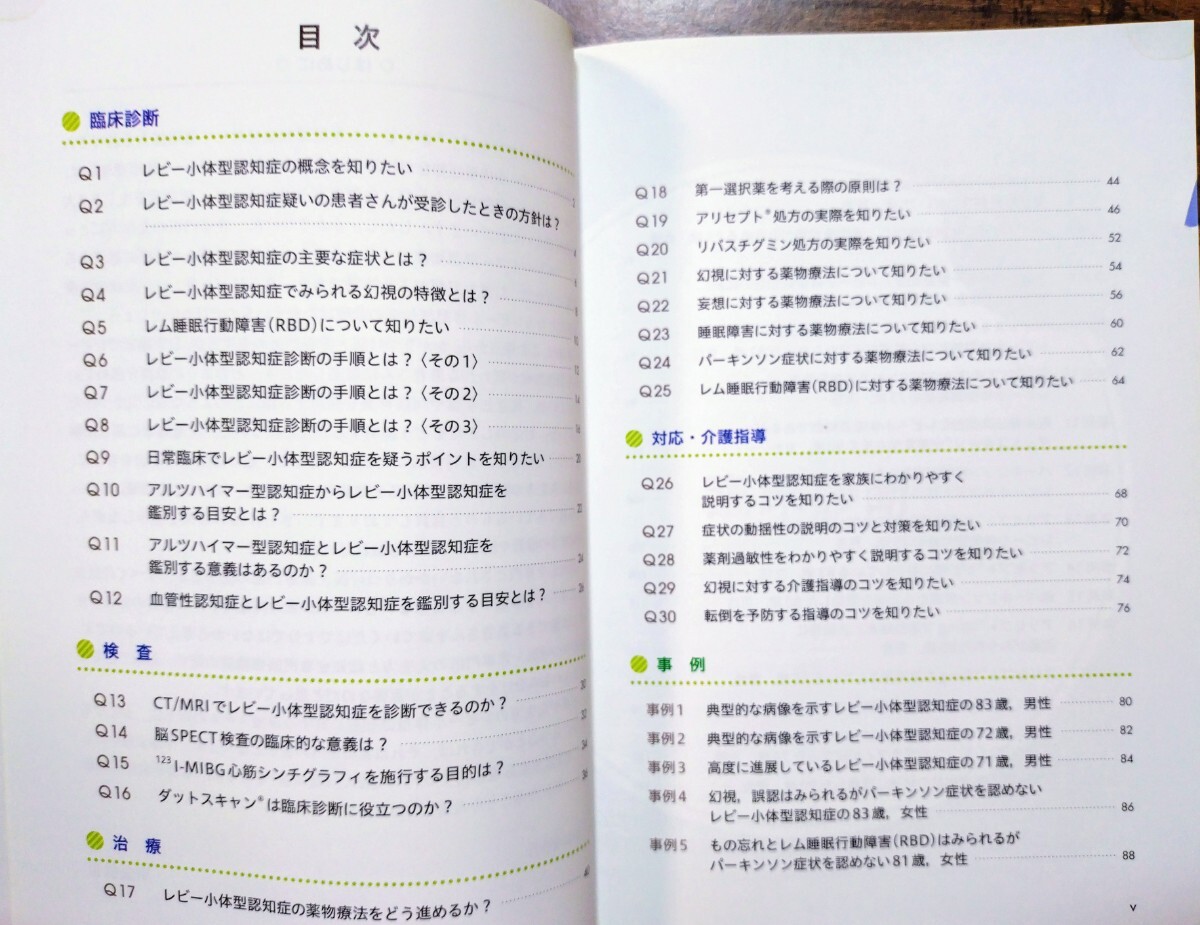 目 次
臨床診断
Q1 レビー小体型認知症の概念を知りたい 2
Q2 レビー小体型認知症疑いの患者さんが受診したときの方針は？
4
Q3 レビー小体型認知症の主要な症状とは？ 6
Q4 レビー小体型認知症でみられる幻視の特徴とは？ 8
Q5 レム睡眠行動障害（RBD）について知りたい 10
Q6 レビー小体型認知症診断の手順とは？〈その1〉 12
Q7 レビー小体型認知症診断の手順とは？〈その2〉 14
Q8 レビー小体型認知症診断の手順とは？〈その3〉 16
Q9 日常臨床でレビー小体型認知症を疑うポイントを知りたい 20
Q10 アルツハイマー型認知症からレビー小体型認知症を
鑑別する目安とは？ 22
Q11 アルツハイマー型認知症とレビー小体型認知症を
鑑別する意義はあるのか？ 24
Q12 血管性認知症とレビー小体型認知症を鑑別する目安とは？ 26
検 査
Q13 CT/MRIでレビー小体型認知症を診断できるのか？ 30
Q14 脳SPECT検査の臨床的な意義は？ 32
Q15 123I-MIBG心筋シンチグラフィを施行する目的は？ 34
Q16 ダットスキャン®は臨床診断に役立つのか？
治 療
Q17 レビー小体型認知症の薬物療法をどう進めるか？ 40
Q18 第一選択薬を考える際の原則は？ 44
Q19 アリセプト®処方の実際を知りたい 46
Q20 リバスチグミン処方の実際を知りたい 52
Q21 幻視に対する薬物療法について知りたい 54
Q22 妄想に対する薬物療法について知りたい 56
Q23 睡眠障害に対する薬物療法について知りたい 60
Q24 パーキンソン症状に対する薬物療法について知りたい 62
Q25 レム睡眠行動障害（RBD）に対する薬物療法について知りたい 64
対応・介護指導
Q26 レビー小体型認知症を家族にわかりやすく
説明するコツを知りたい 68
Q27 症状の動揺性の説明のコツと対策を知りたい 70
Q28 薬剤過敏性をわかりやすく説明するコツを知りたい 72
Q29 幻視に対する介護指導のコツを知りたい 74
Q30 転倒を予防する指導のコツを知りたい 76
事 例
事例1 典型的な病像を示すレビー小体型認知症の83歳，男性 80
事例2 典型的な病像を示すレビー小体型認知症の72歳，男性 82
事例3 高度に進展しているレビー小体型認知症の71歳，男性 84
事例4 幻視，誤認はみられるがパーキンソン症状を認めない
レビー小体型認知症の83歳，女性 86
事例5 もの忘れとレム睡眠行動障害（RBD）はみられるが
パーキンソン症状を認めない81歳，女性 88
v